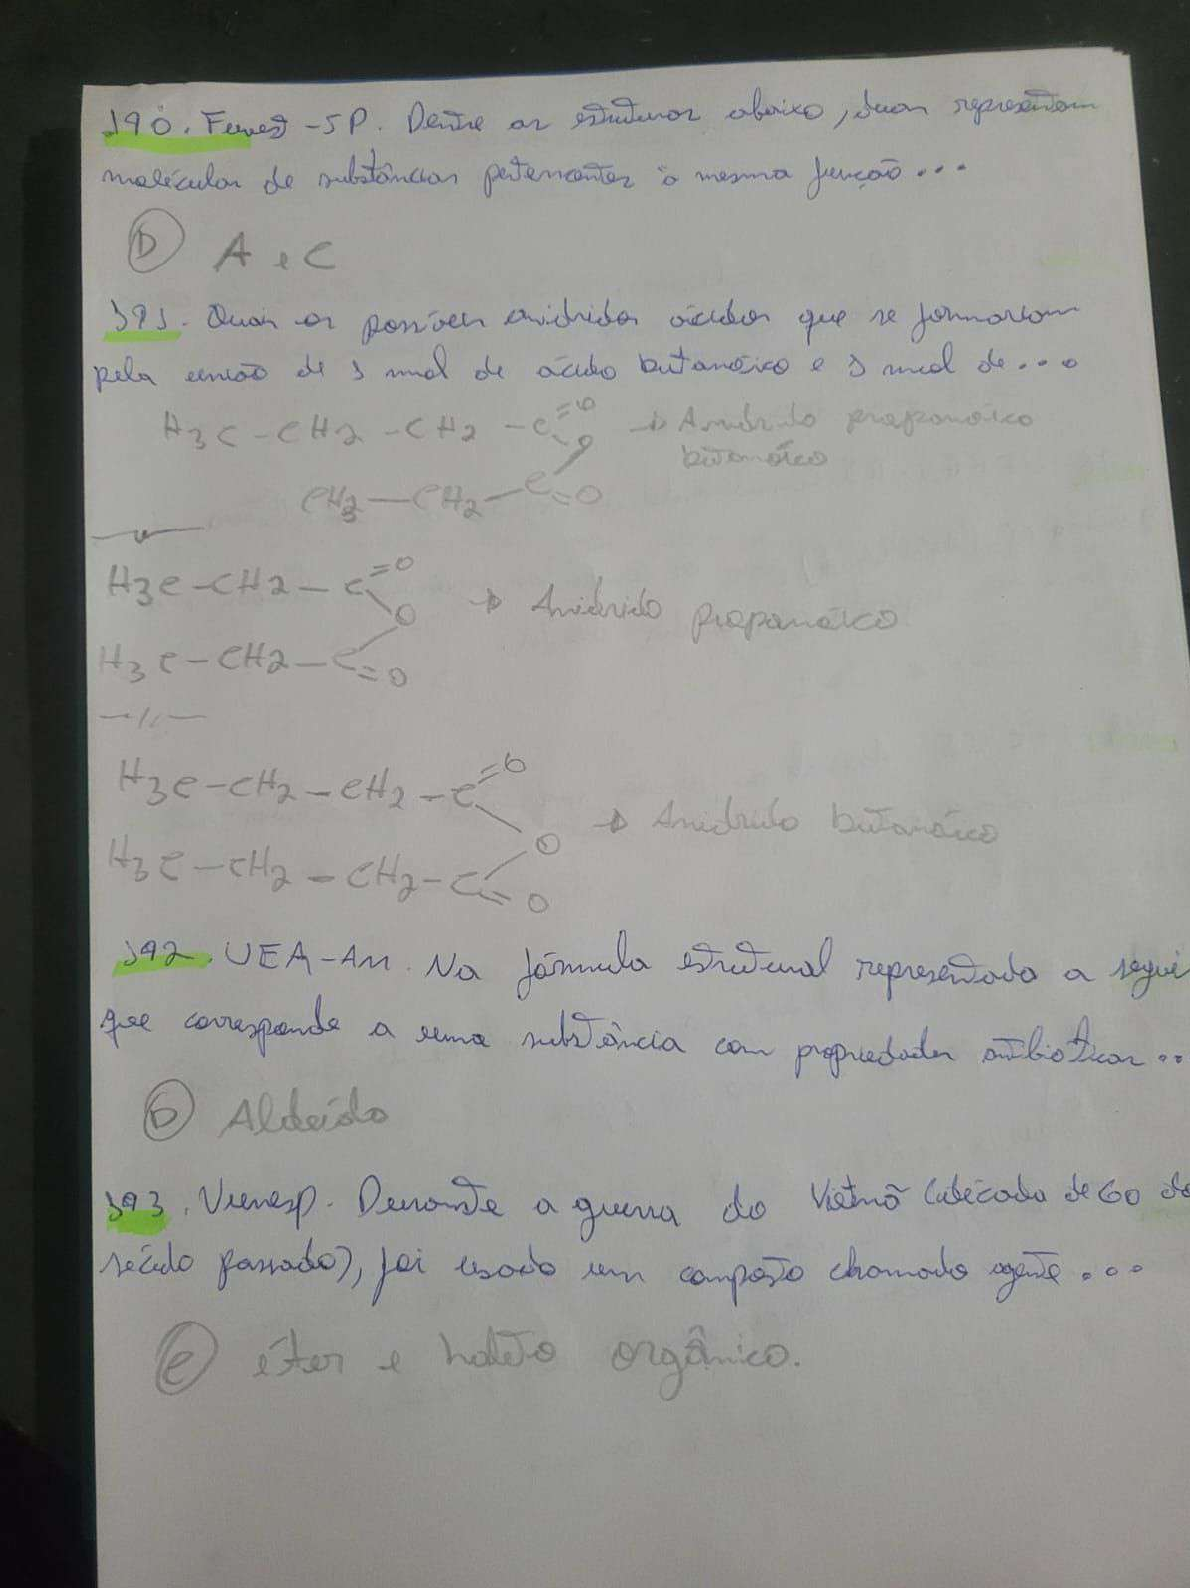 190. Fuvest - SP. Dentre as estruturas abaixo, duas representam
moléculas de substâncias pertencentes à mesma função...
D A e C
191. Quais os possíveis anidridos ácidos que se formariam
pela união de 1 mol de ácido butanóico e 1 mol de...
H3C - CH2 - CH2 - C = O → Anidrido propanóico
O butanóico
CH3 - CH2 - C = O
H3C - CH2 - C = O
O → Anidrido propanóico
H3C - CH2 - C = O
H3C - CH2 - CH2 - C = O
O → Anidrido butanóico
H3C - CH2 - CH2 - C = O
192. UEA-AM. Na fórmula estrutural representada a segui
que corresponde a uma substância com propriedades antibioticas...
D Aldeído
193. Vunesp. Durante a guerra do Vietnã (década de 60 do
século passado), foi usado um composto chamado agente...
e éter e haleto orgânico.